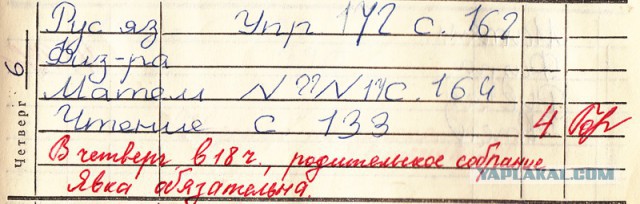 Четверг 6
Рус яз Упр 172 с. 162
Физ-ра
Матем N N с. 164
Чтение с 133 4
В четверг, в 18 ч., родительское собрание
Явка обязательна.
YAPLAKAL.COM